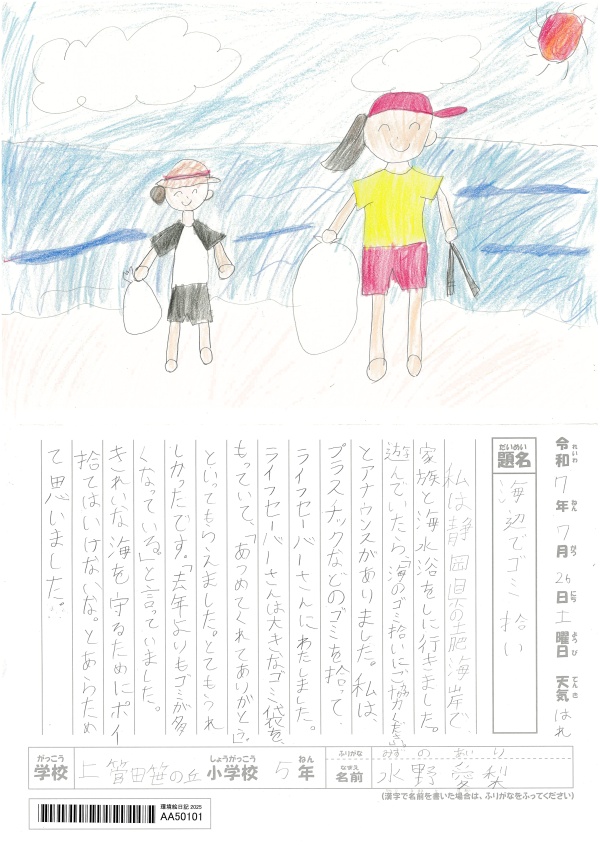 令和7年7月26日土曜日 天気 はれ
れいわ ねん がつ にち ようび てんき
だいめい
題名
海辺でゴミ拾い
私は静岡県の 海岸で、
家族と海水浴をしに行きました。
遊んでいたら、「海のゴミ拾いにご協力ください」
とアナウンスがありました。私は、
プラスチックなどのゴミを拾って、
ライフセーバーさんにわたしました。
ライフセーバーさんは大きなゴミ袋を、
もっていて、「あつめてくれてありがとう」
といってもらえました。とてもうれ
しかったです。「去年よりもゴミが多
くなっている。」と言っていました。
きれいな海を守るためにポイ
捨てはいけないな。とあらため
て思いました。
がっこう しょうがっこう ねん
学校 上菅田笹の丘 小学校 5年
ふりがな みずの あいり
なまえ
名前 水野 愛梨
(漢字で名前を書いた場合は、ふりがなをふってください)
環境絵日記 2025
AA50101